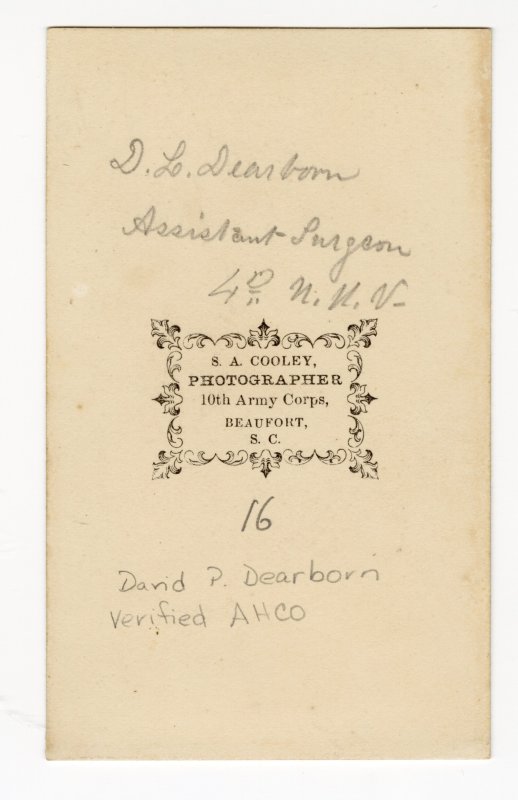 D. L. Dearborn
Assistant Surgeon
4th N. H. V-
S. A. COOLEY,
PHOTOGRAPHER
10th Army Corps,
BEAUFORT,
S. C.
16
David P. Dearborn
Verified AHCO